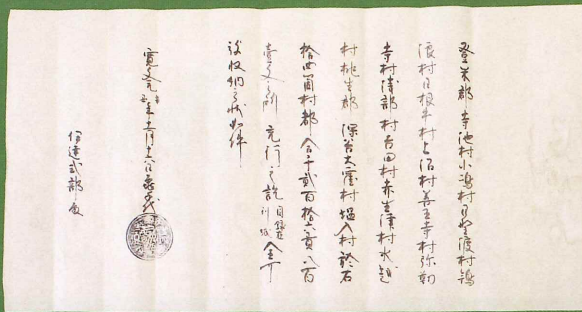 登米郡寺池村小嶋村日野渡村鴇
浪村日根牛村上沼村善王寺村弥勒
寺村浅部村吉田村赤生津村水越
村桃生郡深谷大窪村塩入村於石
拾四箇村都合千弐百拾六貫八百
壱文所充行之訖目録在別紙全可
該収納之状如件
寛文元年十一月十六日亀千代
伊達式部殿